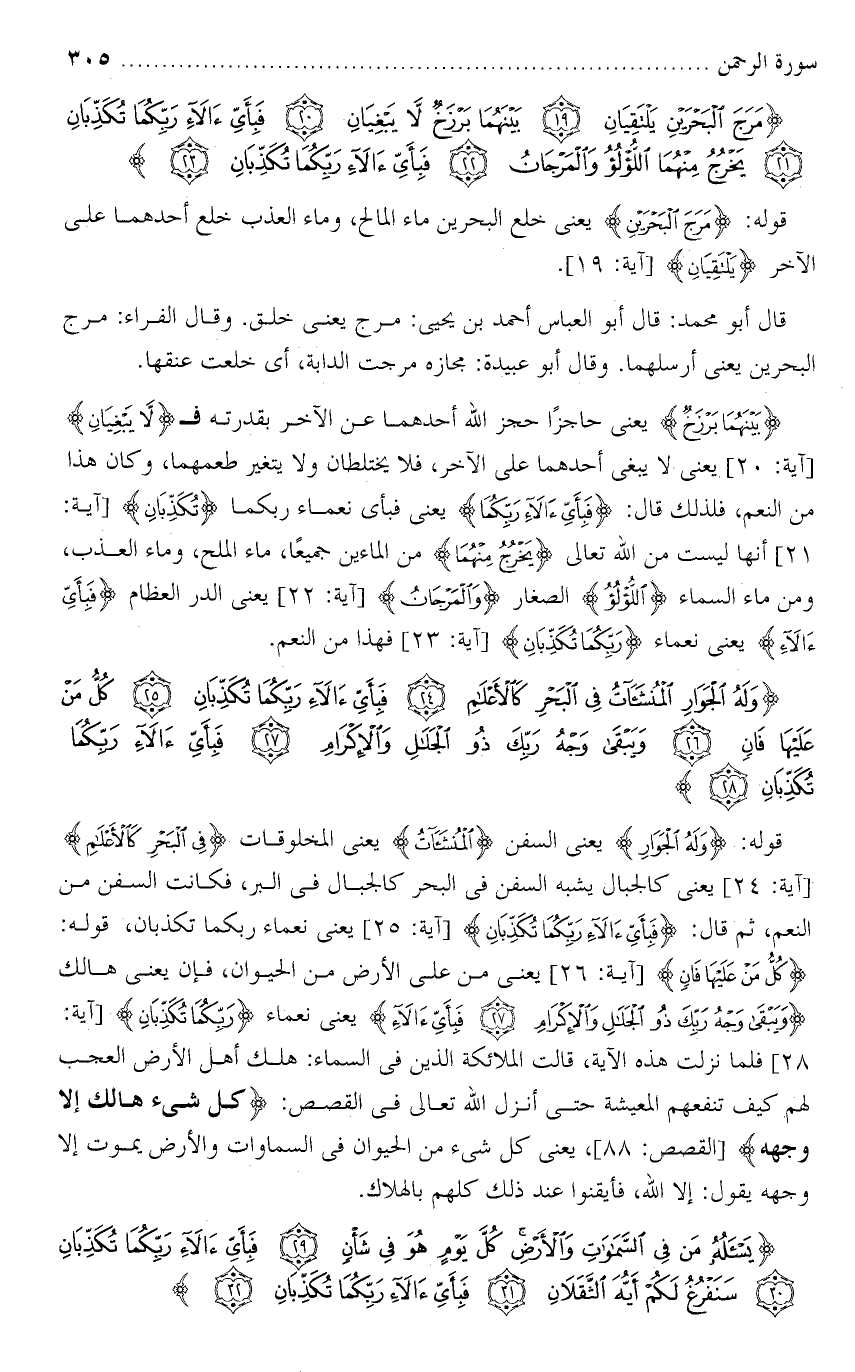 سورة الرحمن ............................................................ ٣٠٥
﴿مَرَجَ ٱلۡبَحۡرَيۡنِ يَلۡتَقِيَانِ ۝١٩ بَيۡنَهُمَا بَرۡزَخٞ لَّا يَبۡغِيَانِ ۝٢٠ فَبِأَيِّ ءَالَآءِ رَبِّكُمَا تُكَذِّبَانِ
۝٢١ يَخۡرُجُ مِنۡهُمَا ٱللُّؤۡلُؤُ وَٱلۡمَرۡجَانُ ۝٢٢ فَبِأَيِّ ءَالَآءِ رَبِّكُمَا تُكَذِّبَانِ ۝٢٣ ﴾
قوله: ﴿مَرَجَ ٱلۡبَحۡرَيۡنِ﴾ يعنى خلع البحرين ماء المالح، وماء العذب خلع أحدهما على
الآخر ﴿يَلۡتَقِيَانِ﴾ [آية: ١٩].
قال أبو محمد: قال أبو العباس أحمد بن يحيى: مرج يعنى خلق. وقال الفراء: مرج
البحرين يعنى أرسلهما. وقال أبو عبيدة: مجازه مرجت الدابة، أى خلعت عنقها.
﴿بَيۡنَهُمَا بَرۡزَخٞ﴾ يعنى حاجزًا حجز الله أحدهما عن الآخر بقدرته فـ ﴿لَّا يَبۡغِيَانِ﴾
[آية: ٢٠] يعنى لا يبغى أحدهما على الآخر، فلا يختلطان ولا يتغير طعمهما، وكان هذا
من النعم، فلذلك قال: ﴿فَبِأَيِّ ءَالَآءِ رَبِّكُمَا﴾ يعنى فبأى نعماء ربكما ﴿تُكَذِّبَانِ﴾ [آية:
٢١] أنها ليست من الله تعالى ﴿يَخۡرُجُ مِنۡهُمَا﴾ من الماءين جميعًا، ماء الملح، وماء العذب،
ومن ماء السماء ﴿ٱللُّؤۡلُؤُ﴾ الصغار ﴿وَٱلۡمَرۡجَانُ﴾ [آية: ٢٢] يعنى الدر العظام ﴿فَبِأَيِّ
ءَالَآءِ﴾ يعنى نعماء ﴿رَبِّكُمَا تُكَذِّبَانِ﴾ [آية: ٢٣] فهذا من النعم.
﴿وَلَهُ ٱلۡجَوَارِ ٱلۡمُنشَـَٔاتُ فِي ٱلۡبَحۡرِ كَٱلۡأَعۡلَٰمِ ۝٢٤ فَبِأَيِّ ءَالَآءِ رَبِّكُمَا تُكَذِّبَانِ ۝٢٥ كُلُّ مَنۡ
عَلَيۡهَا فَانٖ ۝٢٦ وَيَبۡقَىٰ وَجۡهُ رَبِّكَ ذُو ٱلۡجَلَٰلِ وَٱلۡإِكۡرَامِ ۝٢٧ فَبِأَيِّ ءَالَآءِ رَبِّكُمَا
تُكَذِّبَانِ ۝٢٨ ﴾
قوله: ﴿وَلَهُ ٱلۡجَوَارِ﴾ يعنى السفن ﴿ٱلۡمُنشَـَٔاتُ﴾ يعنى المخلوقات ﴿فِي ٱلۡبَحۡرِ كَٱلۡأَعۡلَٰمِ﴾
[آية: ٢٤] يعنى كالجبال يشبه السفن فى البحر كالجبال فى البر، فكانت السفن من
النعم، ثم قال: ﴿فَبِأَيِّ ءَالَآءِ رَبِّكُمَا تُكَذِّبَانِ﴾ [آية: ٢٥] يعنى نعماء ربكما تكذبان، قوله:
﴿كُلُّ مَنۡ عَلَيۡهَا فَانٖ﴾ [آية: ٢٦] يعنى من على الأرض من الحيوان، فإن يعنى هالك
﴿وَيَبۡقَىٰ وَجۡهُ رَبِّكَ ذُو ٱلۡجَلَٰلِ وَٱلۡإِكۡرَامِ ۝٢٧ فَبِأَيِّ ءَالَآءِ﴾ يعنى نعماء ﴿رَبِّكُمَا تُكَذِّبَانِ﴾ [آية:
٢٨] فلما نزلت هذه الآية، قالت الملائكة الذين فى السماء: هلك أهل الأرض العجب
لهم كيف تنفعهم المعيشة حتى أنزل الله تعالى فى القصص: ﴿كل شىء هالك إلا
وجهه﴾ [القصص: ٨٨]، يعنى كل شىء من الحيوان فى السماوات والأرض يموت إلا
وجهه يقول: إلا الله، فأيقنوا عند ذلك كلهم بالهلاك.
﴿يَسۡـَٔلُهُۥ مَن فِي ٱلسَّمَٰوَٰتِ وَٱلۡأَرۡضِۚ كُلَّ يَوۡمٍ هُوَ فِي شَأۡنٖ ۝٢٩ فَبِأَيِّ ءَالَآءِ رَبِّكُمَا تُكَذِّبَانِ
۝٣٠ سَنَفۡرُغُ لَكُمۡ أَيُّهَ ٱلثَّقَلَانِ ۝٣١ فَبِأَيِّ ءَالَآءِ رَبِّكُمَا تُكَذِّبَانِ ۝٣٢ ﴾